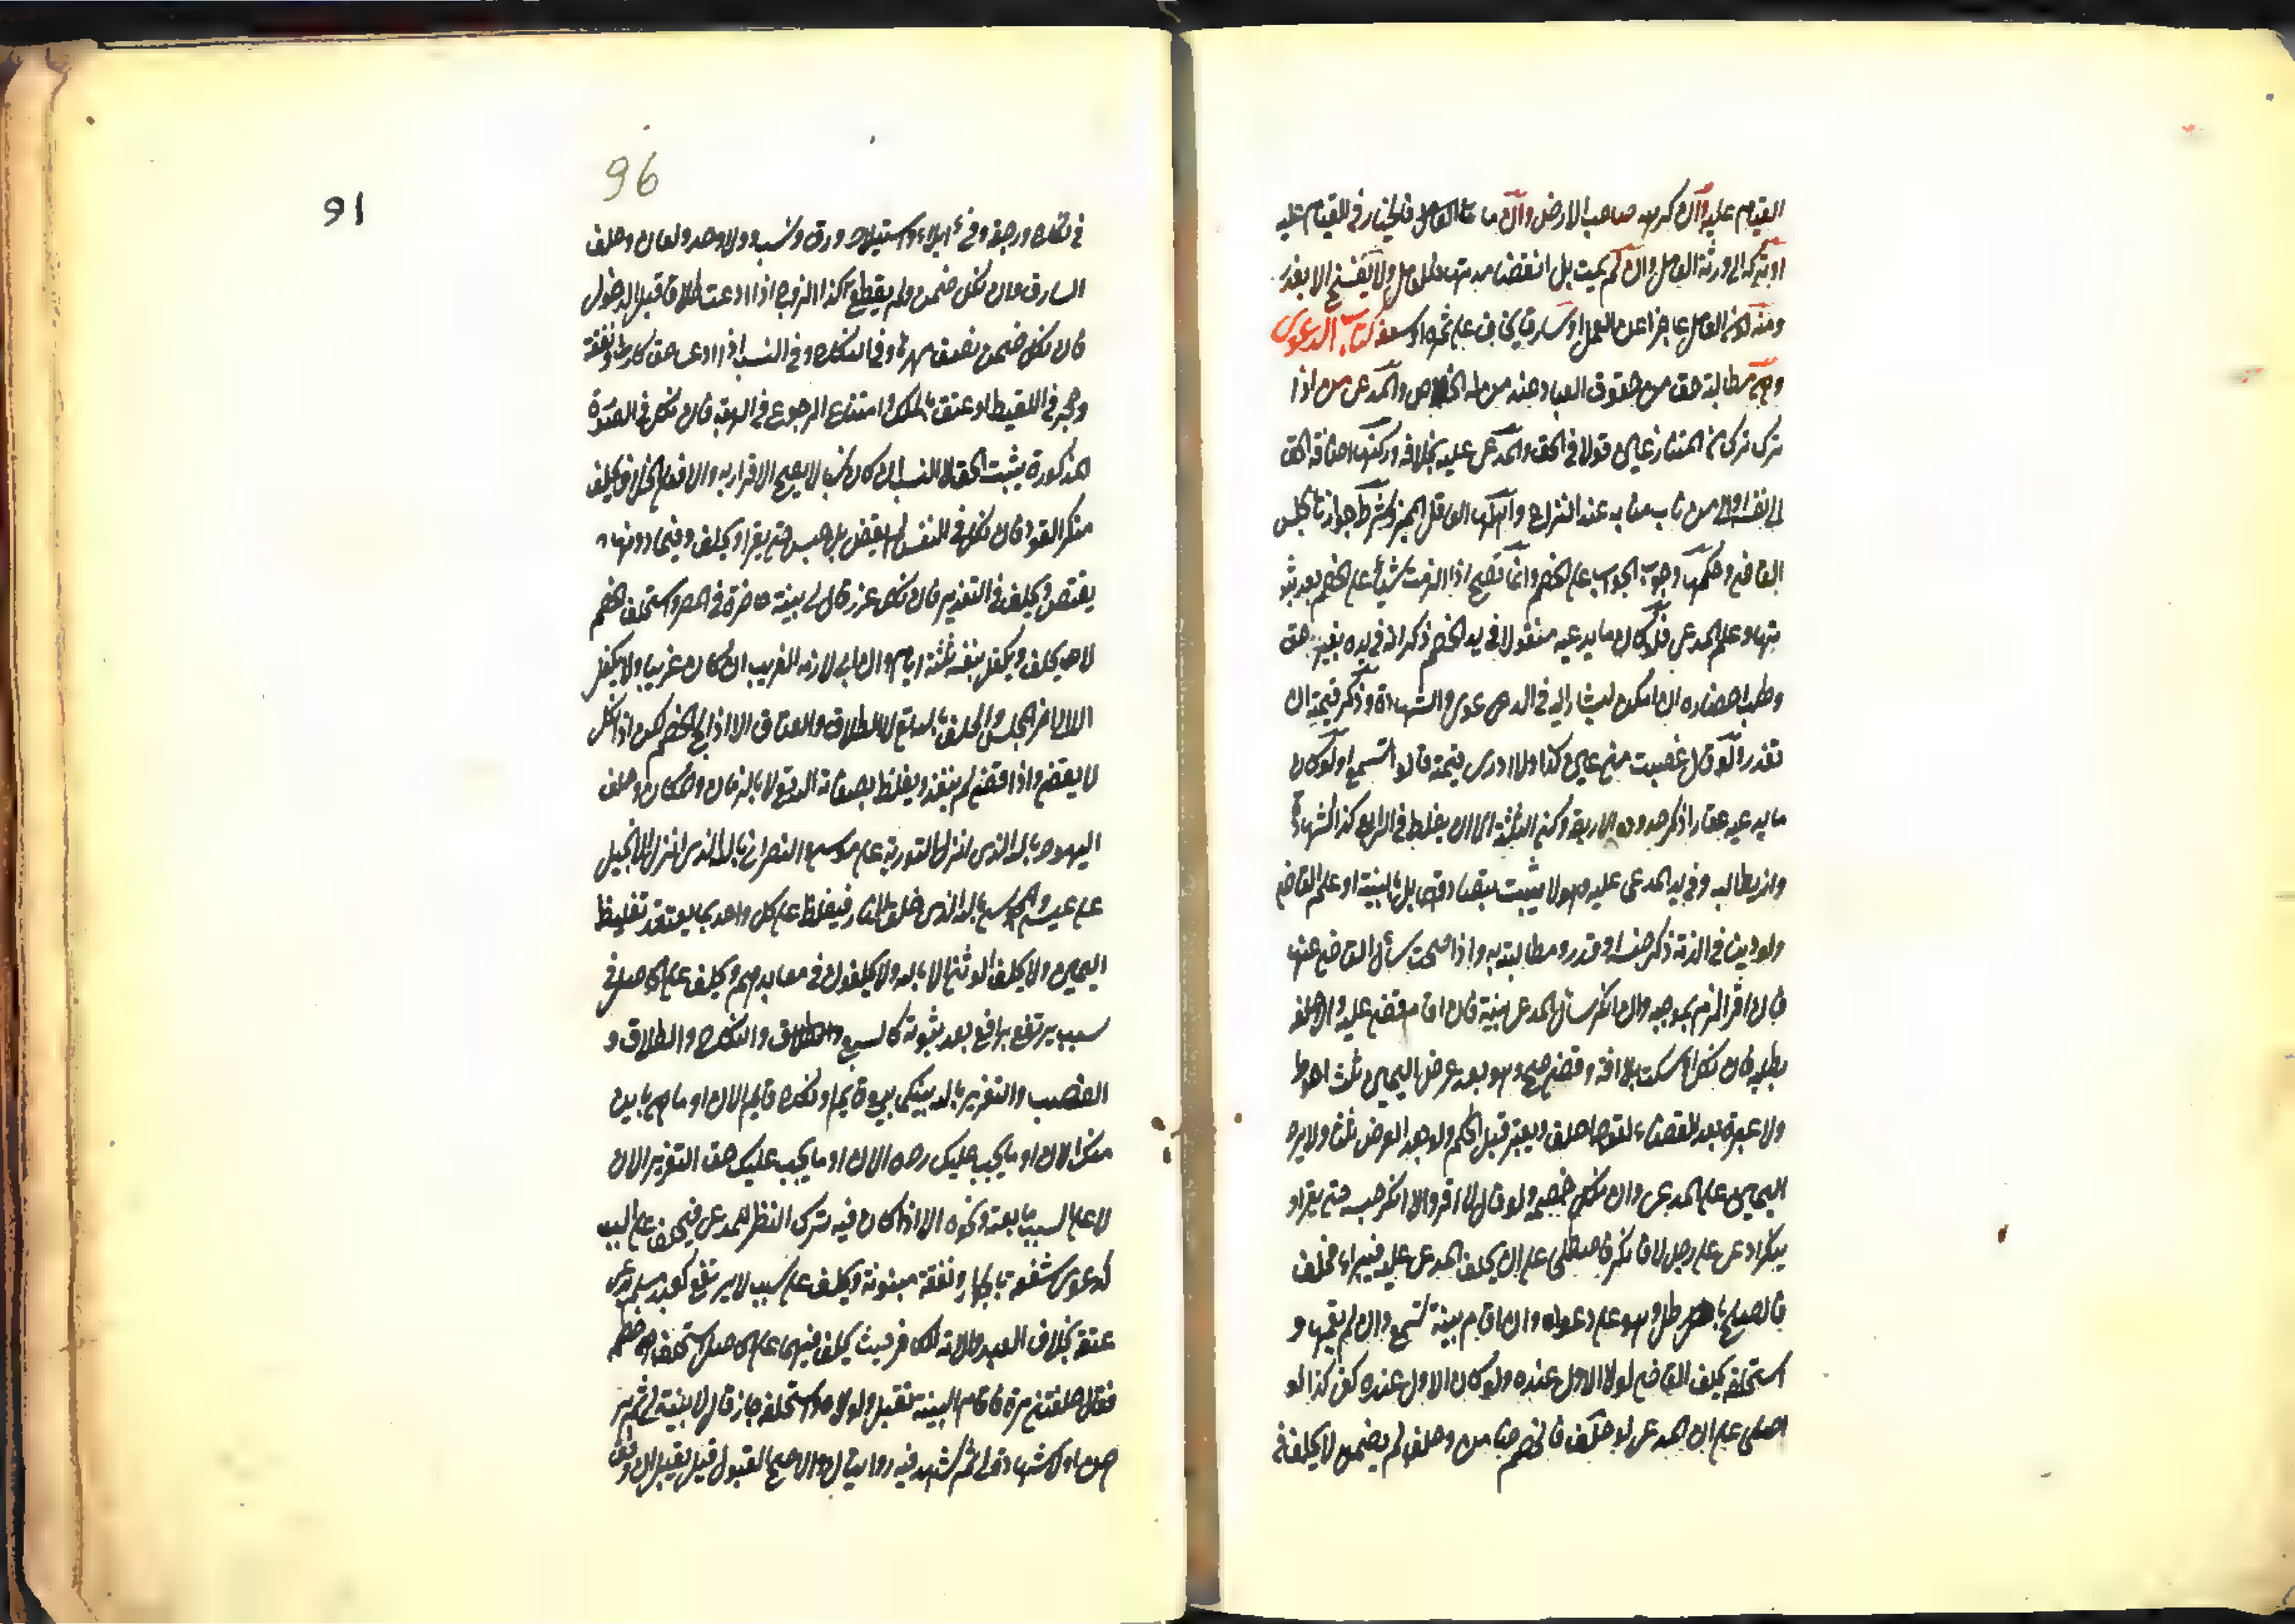 القيام عليه وان كره صاحب الارض وان ماتا فالخيار في القيام عليه
او تركه الى ورثة العامل وان لم يمت بل انقضت مدتها فللعامل ولا تفسخ الا بعذر
ومنه كون العامل عاجزا عن العمل او سارقا يخاف على ثمره او سعفه كتاب الدعوى
وهي مطالبة حق من حقوق العباد عند من له الخلاص والمدعي من اذا
ترك ترك المتنازعين قولا في الحق والمدعى عليه بخلافه وركنها اضافة الحق
الى نفسه او الى من ناب منابه عند النزاع واهلها العاقل المميز وشرط جوازها مجلس
القاضي وحكمها وجوب الجواب على الخصم وانما تصح اذا الزمت شيئا على الخصم بعد ثبو
تها وعلم المدعى فلو كان ما يدعيه منقولا في يد الخصم ذكر انه في يده بغير حق
وطلب احضاره ان امكن ليشار اليه في الدعوى والشهادة وذكر قيمته ان
تعذر ولو قال غصبت مني عين كذا ولا ادري قيمته قالوا تسمع ولو كان
ما يدعيه عقارا ذكر حدوده الاربعة وكفى الثلثة الا ان يغلط في الرابع كذا الشهادة
وانه يطالبه وفي يد المدعى عليه وهو لا يثبت بتصادقهما بل بالبينة او علم القاضي
ولو دينا في الذمة ذكر جنسه وقدره ومطالبته به واذا صحت سأل القاضي عنها
فان اقر الزم بموجبه وان انكر سأل المدعي بينة فان اقام قضى عليه والا حلفه
بطلبه فان نكل او سكت بلا افة وقضى صح وهو بعد عرض اليمين ثلث احوط
ولا عبرة بعد القضاء لقوله احلف ويعتبر قبل الحكم ولو بعد العرض ثلثا ولا يرد
اليمين على المدعي وان نكل خصمه ولو قال لا اقر ولا انكر حبسه حتى يقر او
ينكر ادعى على رجل لا فانكر فاصطلحا على ان يحلف المدعى عليه فيبرأ فحلف
فالصلح باطل وهو على دعواه وان اقام بينة تسمع وان لم يقمها و
استحلفه يحلف القاضي لو لا الاول عنده ولو كان الاول عنده كفى كذا لو
اصطلحا على ان المدعي لو حلف فالخصم ضامن وحلف لم يضمن لا يحلف في
96
91
في نكاح ورجعة وفئ ايلاء واستيلاد ورق ونسب وولاء وحد ولعان وحلف
السارق فان نكل ضمن ولم يقطع كذا الزوج اذا ادعت طلاقا قبل الدخول
فان نكل ضمن نصف مهرها وفي النكاح وفي النسب اذا ادعى حقا كارث ونفقة
وحجر في اللقيط او عتق بالملك وامتناع الرجوع في الهبة فان نكل في الصورة
المذكورة يثبت الحق لا النسب ان كان نسبا لا يصح الاقرار به والا فعلى الخلاف ويحلف
منكر القود فان نكل في النفس لم يقض بل حبس حتى يقر او يحلف وفيما دونها
يقتص ويحلف في التعزير فان نكل عزر قال لي بينة حاضرة في المصر واستحلف الخصم
لا يحلف ويكفل بنفسه ثلثة ايام وان ابى لازمه الغريب ان كان غريبا ولا يكفل
الا الى اخر المجلس والحلف بالله تعالى لا بالطلاق والعتاق الا اذا الح الخصم لكن اذا نكل
لا يقضى واذا قضى لم ينفذ ويغلظ بصفاته تعالى لا بالزمان ومكان وحلف
اليهودي بالله الذي انزل التورية على موسى والنصراني بالله الذي انزل الانجيل
على عيسى والمجوسي بالله الذي خلق النار فيغلظ على كل واحد بما يعتقد تغليظ
اليمين ولا يحلف الوثني الا بالله ولا يحلفون في معابدهم ويحلف على الحاصل في
سبب يرتفع برافع بعد ثبوته كالبيع والنكاح والطلاق و
الغصب والتعزير بالله بينكما بيع قائم او نكاح قائم الان او ما هي باين
منك الان او ما يجب عليك رده الان او ما يجب عليك حق التعزير الان
لا على السبب ما بعته ونحوه الا اذا كان فيه ترك النظر للمدعي فيحلف على السبب
كدعوى شفعة بالجوار ونفقة مبتوتة ويحلف على سبب لا يرتفع كعبد مسلم يدعي
عتقه بخلاف العبد الكافر حيث يحلف فيهما على الحاصل استحلف خصمه
فقال حلفتني مرة فاقام البينة تقبل ولولاه واستحلفه جاز قال لا بينة لي ثم برهن
او لا شهادة لي ثم شهد فيه روايتان والاصح القبول قيل يقبل ان وفق